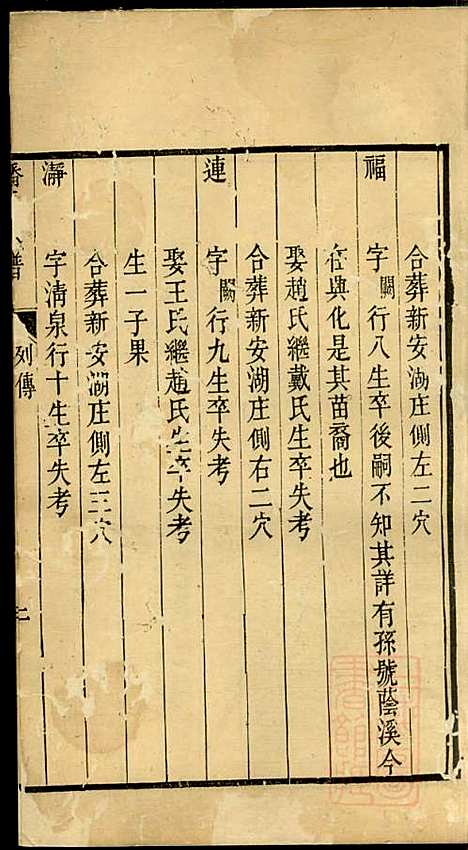 合葬新安湖庄側左二穴
福 字闕行八生卒後嗣不知其詳有孫號蔭溪今
在興化是其苗裔也
娶趙氏繼戴氏生卒失考
合葬新安湖庄側右二穴
連 字闕行九生卒失考
娶王氏繼趙氏生卒失考
生一子果
合葬新安湖庄側左三穴
瀞 字清泉行十生卒失考
譜 列傳 二